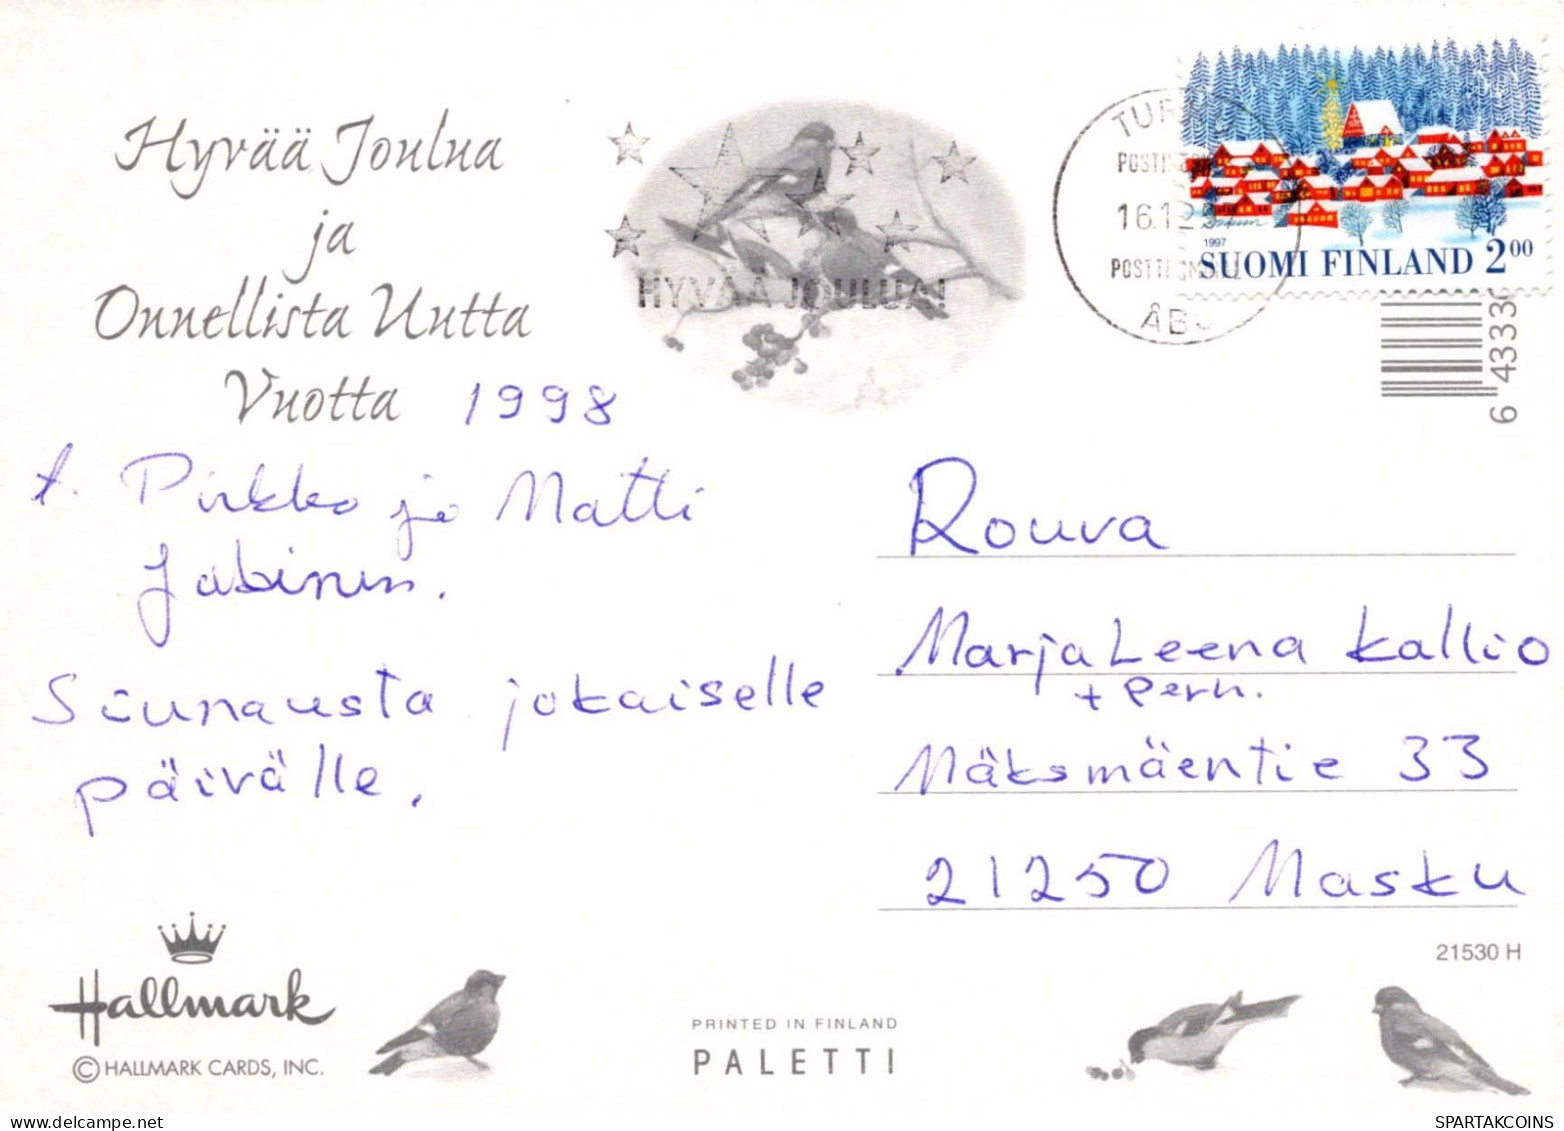 Hyvää Joulua
ja
Onnellista Uutta
Vuotta 1998
t. Pirkko ja Matti
Siunausta jokaiselle
päivälle.
HYVÄÄ JOULUA!
16.12
1997
SUOMI FINLAND 2 00
6 43333
Rouva
MarjaLeena Kallio
+ perh.
Mäksmäentie 33
21250 Masku
21530 H
Hallmark
© HALLMARK CARDS, INC.
PRINTED IN FINLAND
PALETTI
SPARTAKCOINS